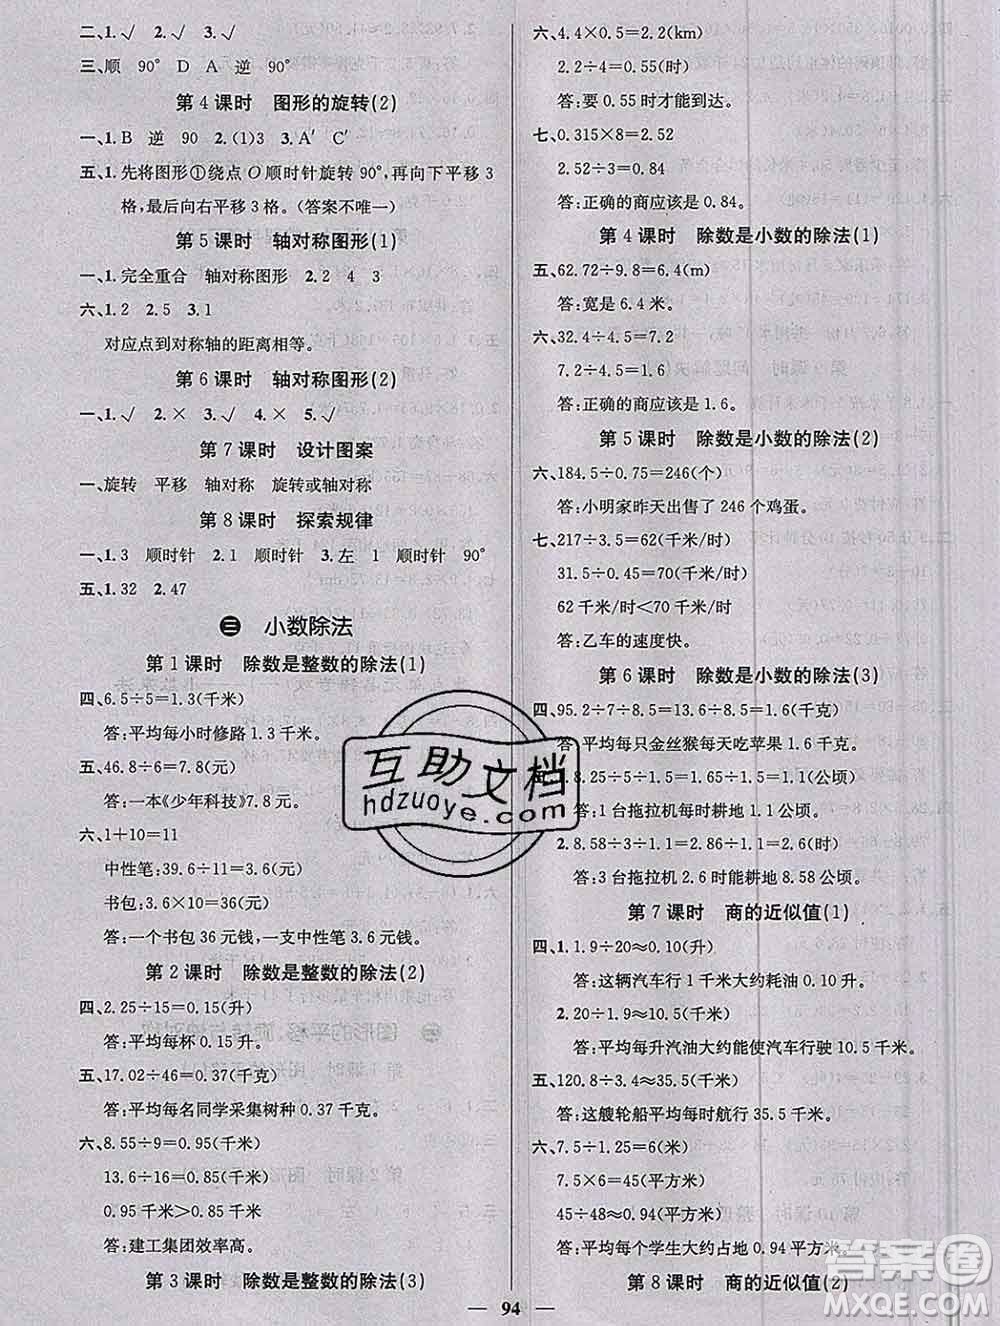 二、1.√　2.√　3.√
三、顺　90°　D　A　逆　90°
第 4 课时　图形的旋转(2)
一、1.B　逆　90　2.(1)3　3.A′　C′
五、1.先将图形①绕点 O 顺时针旋转 90°,再向下平移 3
格,最后向右平移 3 格。(答案不唯一)
第 5 课时　轴对称图形(1)
一、1.完全重合　轴对称图形　2.2　4　3
六、1.2　2.5　3.1
对应点到对称轴的距离相等。
第 6 课时　轴对称图形(2)
一、1.√　2.×　3.√　4.×　5.√
第 7 课时　设计图案
一、旋转　平移　轴对称　旋转或轴对称
第 8 课时　探索规律
一、1.3　顺时针　2.1　顺时针　3.左　1　顺时针　90°
五、1.32　2.47
三　小数除法
第 1 课时　除数是整数的除法(1)
四、6.5÷5=1.3(千米)
答:平均每小时修路 1.3 千米。
五、46.8÷6=7.8(元)
答:一本《少年科技》7.8 元。
六、1+10=11
中性笔:39.6÷11=3.6(元)
书包:3.6×10=36(元)
答:一个书包 36 元钱,一支中性笔 3.6 元钱。
第 2 课时　除数是整数的除法(2)
四、2.25÷15=0.15(升)
答:平均每杯 0.15 升。
五、17.02÷46=0.37(千克)
答:平均每名同学采集树种 0.37 千克。
六、8.55÷9=0.95(千米)
13.6÷16=0.85(千米)
0.95千米>0.85 千米
答:建工集团效率高。
第 3 课时　除数是整数的除法(3)
六、4.4×0.5=2.2(km)
2.2÷4=0.55(时)
答:要 0.55 时才能到达。
七、0.315×8=2.52
2.52÷3=0.84
答:正确的商应该是 0.84。
第 4 课时　除数是小数的除法(1)
五、62.72÷9.8=6.4(m)
答:宽是 6.4 米。
六、32.4÷4.5=7.2
7.2÷4.5=1.6
答:正确的商应该是 1.6。
第 5 课时　除数是小数的除法(2)
六、184.5÷0.75=246(个)
答:小明家昨天出售了 246 个鸡蛋。
七、217÷3.5=62(千米/时)
31.5÷0.45=70(千米/时)
62 千米/时<70 千米/时
答:乙车的速度快。
第 6 课时　除数是小数的除法(3)
四、95.2÷7÷8.5=13.6÷8.5=1.6(千克)
答:平均每只金丝猴每天吃苹果 1.6 千克。
五、1.8.25÷5÷1.5=1.65÷1.5=1.1(公顷)
答:1 台拖拉机每时耕地 1.1 公顷。
2.8.58÷3÷1.1=2.86÷1.1=2.6(时)
答:3 台拖拉机 2.6 时能耕地 8.58 公顷。
第 7 课时　商的近似值(1)
四、1.1.9÷20≈0.10(升)
答:这辆汽车行 1 千米大约耗油 0.10 升。
2.20÷1.9≈10.53(千米)
答:平均每升汽油大约能使汽车行驶 10.53 千米。
五、120.8÷3.4≈35.5(千米)
答:这艘轮船平均每时航行 35.5 千米。
六、7.5÷1.25=6(米)
7.5×6=45(平方米)
45÷48≈0.94(平方米)
答:平均每个学生大约占地 0.94 平方米。
第 8 课时　商的近似值(2)
— 94 —
互助文档
hdzuoye.com
答案圈
MXQE.COM